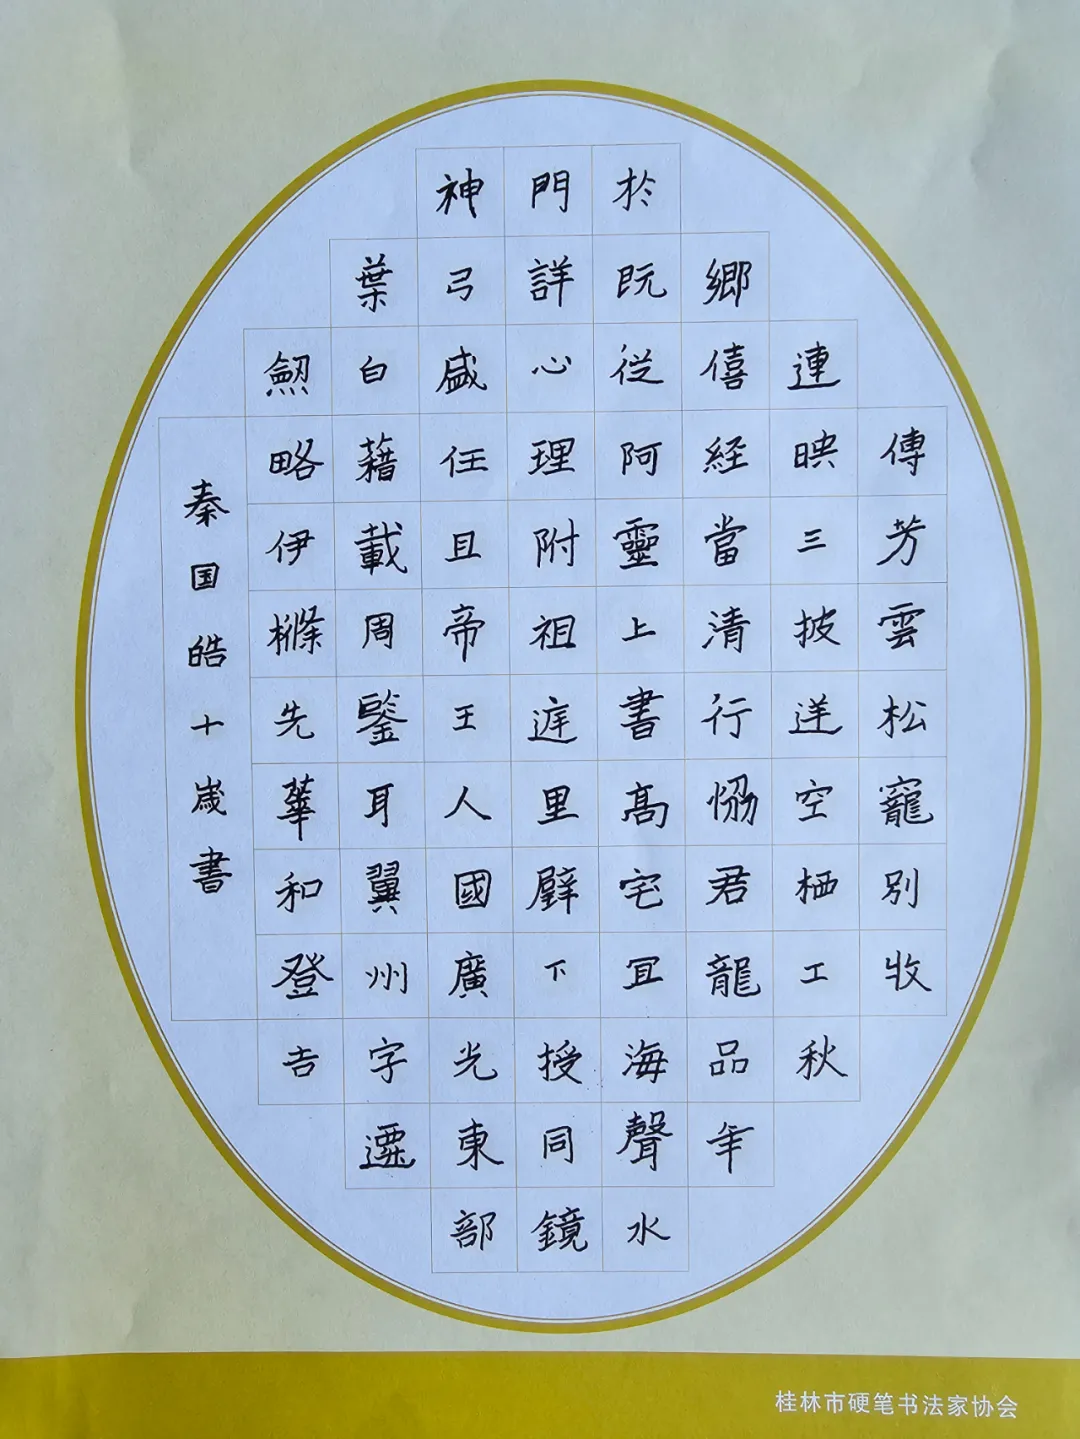 傳芳雲松寵別收
連映三披送空栖工秋
鄉僖経當清行恊君龍品年
於既從阿靈上書高宅宜海聲水
門詳心理附祖遅里壁下授同鏡
神弓盛任且帝王人國廣光東部
葉白藉載周鑒耳翼州字遷
劒略伊滌先華和登吉
秦国皓十歲書
桂林市硬笔书法家协会